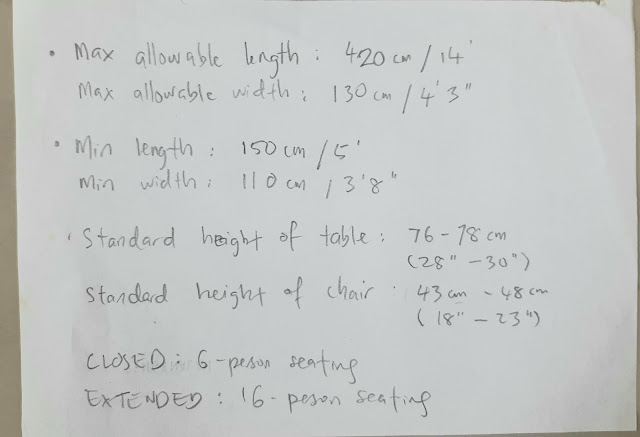 • Max allowable length : 420 cm / 14'
Max allowable width : 130 cm / 4'3"
• Min length : 150 cm / 5'
Min width : 110 cm / 3'8"
• Standard height of table : 76 - 78 cm
(28" - 30")
Standard height of chair : 43 cm - 48 cm
(18" - 23")
CLOSED : 6 - peson seating
EXTENDED : 16 - peson seating